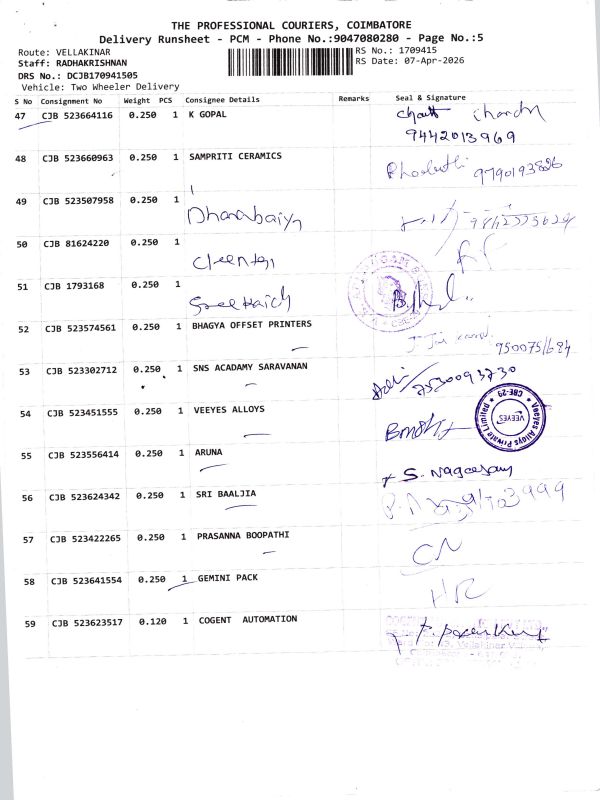 THE PROFESSIONAL COURIERS, COIMBATORE
Delivery Runsheet - PCM - Phone No.:9047080280 - Page No.:5
Route: VELLAKINAR
RS No.: 1709415
Staff: RADHAKRISHNAN
RS Date: 07-Apr-2026
DRS No.: DCJB170941505
Vehicle: Two Wheeler Delivery
S No Consignment No Weight PCS Consignee Details Remarks Seal & Signature
47 CJB 523664116 0.250 1 K GOPAL
9442013969
48 CJB 523660963 0.250 1 SAMPRITI CERAMICS
49 CJB 523507958 0.250 1
50 CJB 81624220 0.250 1
51 CJB 1793168 0.250 1
52 CJB 523574561 0.250 1 BHAGYA OFFSET PRINTERS
53 CJB 523302712 0.250 1 SNS ACADAMY SARAVANAN
54 CJB 523451555 0.250 1 VEEYES ALLOYS
Veeyes Alloys Private Limited
CBE-29
VEEYES
55 CJB 523556414 0.250 1 ARUNA
S. Nageesan
56 CJB 523624342 0.250 1 SRI BAALJIA
57 CJB 523422265 0.250 1 PRASANNA BOOPATHI
CN
58 CJB 523641554 0.250 1 GEMINI PACK
HR
59 CJB 523623517 0.120 1 COGENT AUTOMATION